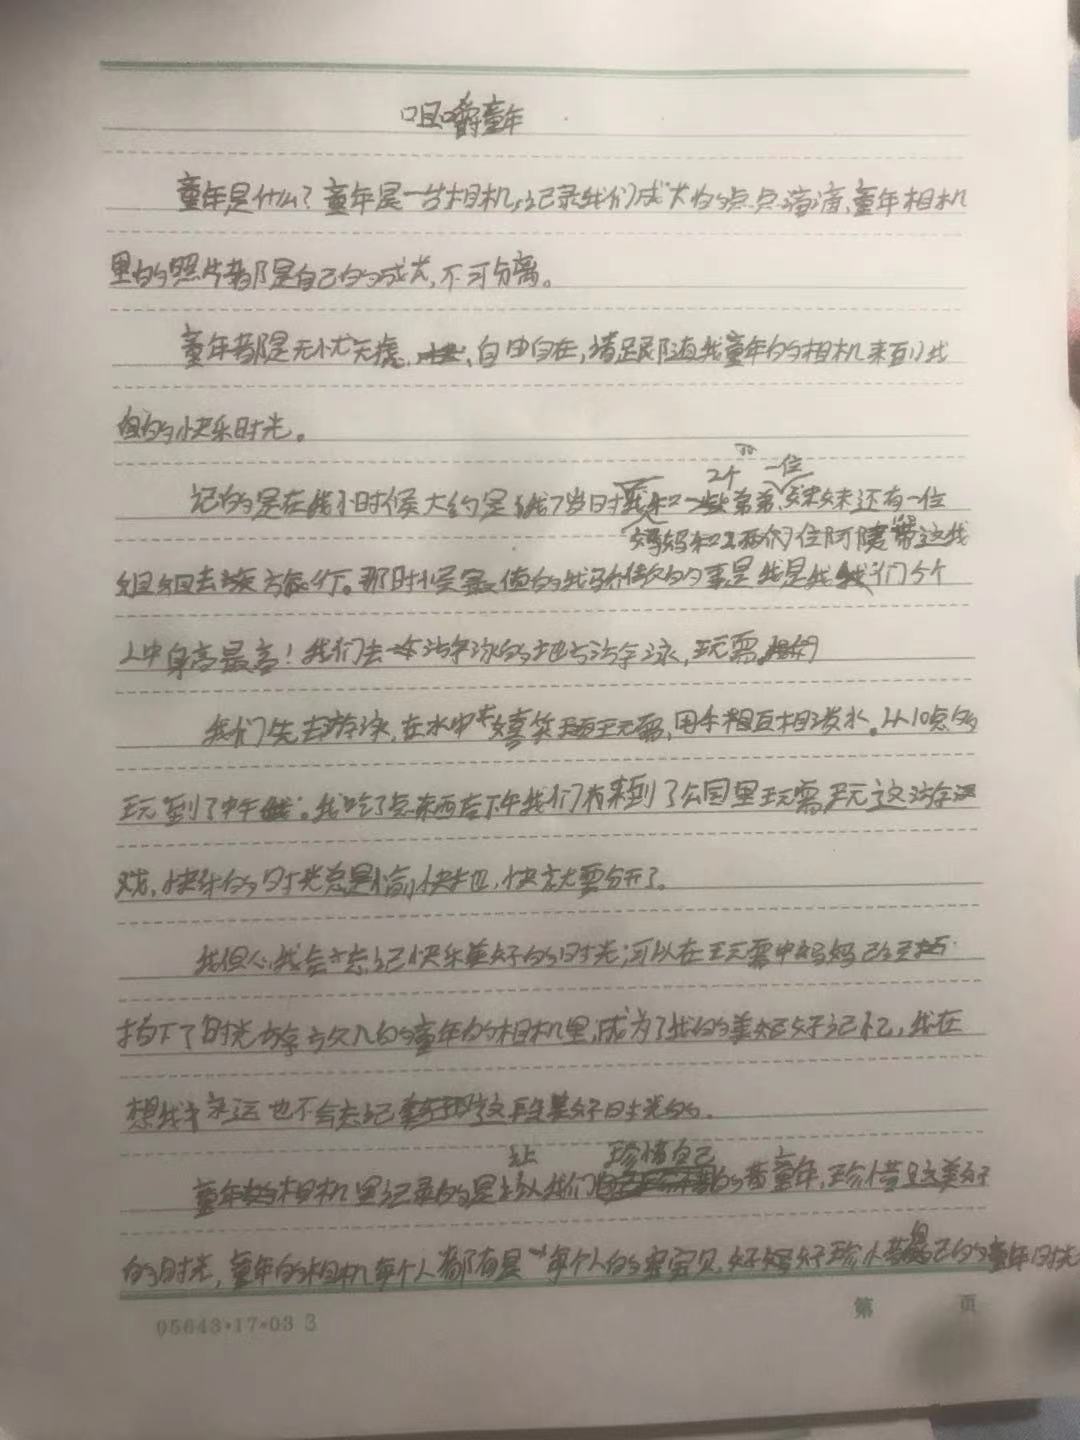 咀嚼童年
童年是什么？童年是一台相机，记录我们成长的点点滴滴、童年相机
里的照片都是自己的成长，不可分离。
童年都是无忧无虑、自由自在，请跟随我童年的相机来到我
的快乐时光。
2个 一位
记的是在我小时候大约是我7岁时我和弟弟、妹妹还有一位
妈妈和两位阿姨带这我
姐姐去旅行。那时候最值的我骄傲的事是我是我们5个
人中身高最高！我们去游泳的地方游泳，玩耍
我们先去游泳，在水中嬉笑玩耍，用手相互相泼水。从10点的
玩到了中午。我吃了点东西后下午我们有来到了公园里玩耍玩这游
戏，快乐的时光总是愉快也，快就要分开了。
我但心我会忘记快乐美好的时光；可以在玩耍中妈妈已
拍下了时光放入的童年的相机里，成为了我的美好记忆，我在
想我永远也不会忘记这段美好时光的.
让 珍惜自己
童年相机里记录的是我们的童年，珍惜这美好
的时光，童年的相机每个人都有是每个人的宝贝，好好珍惜自己的童年时光
05643·17·03 3
第 页